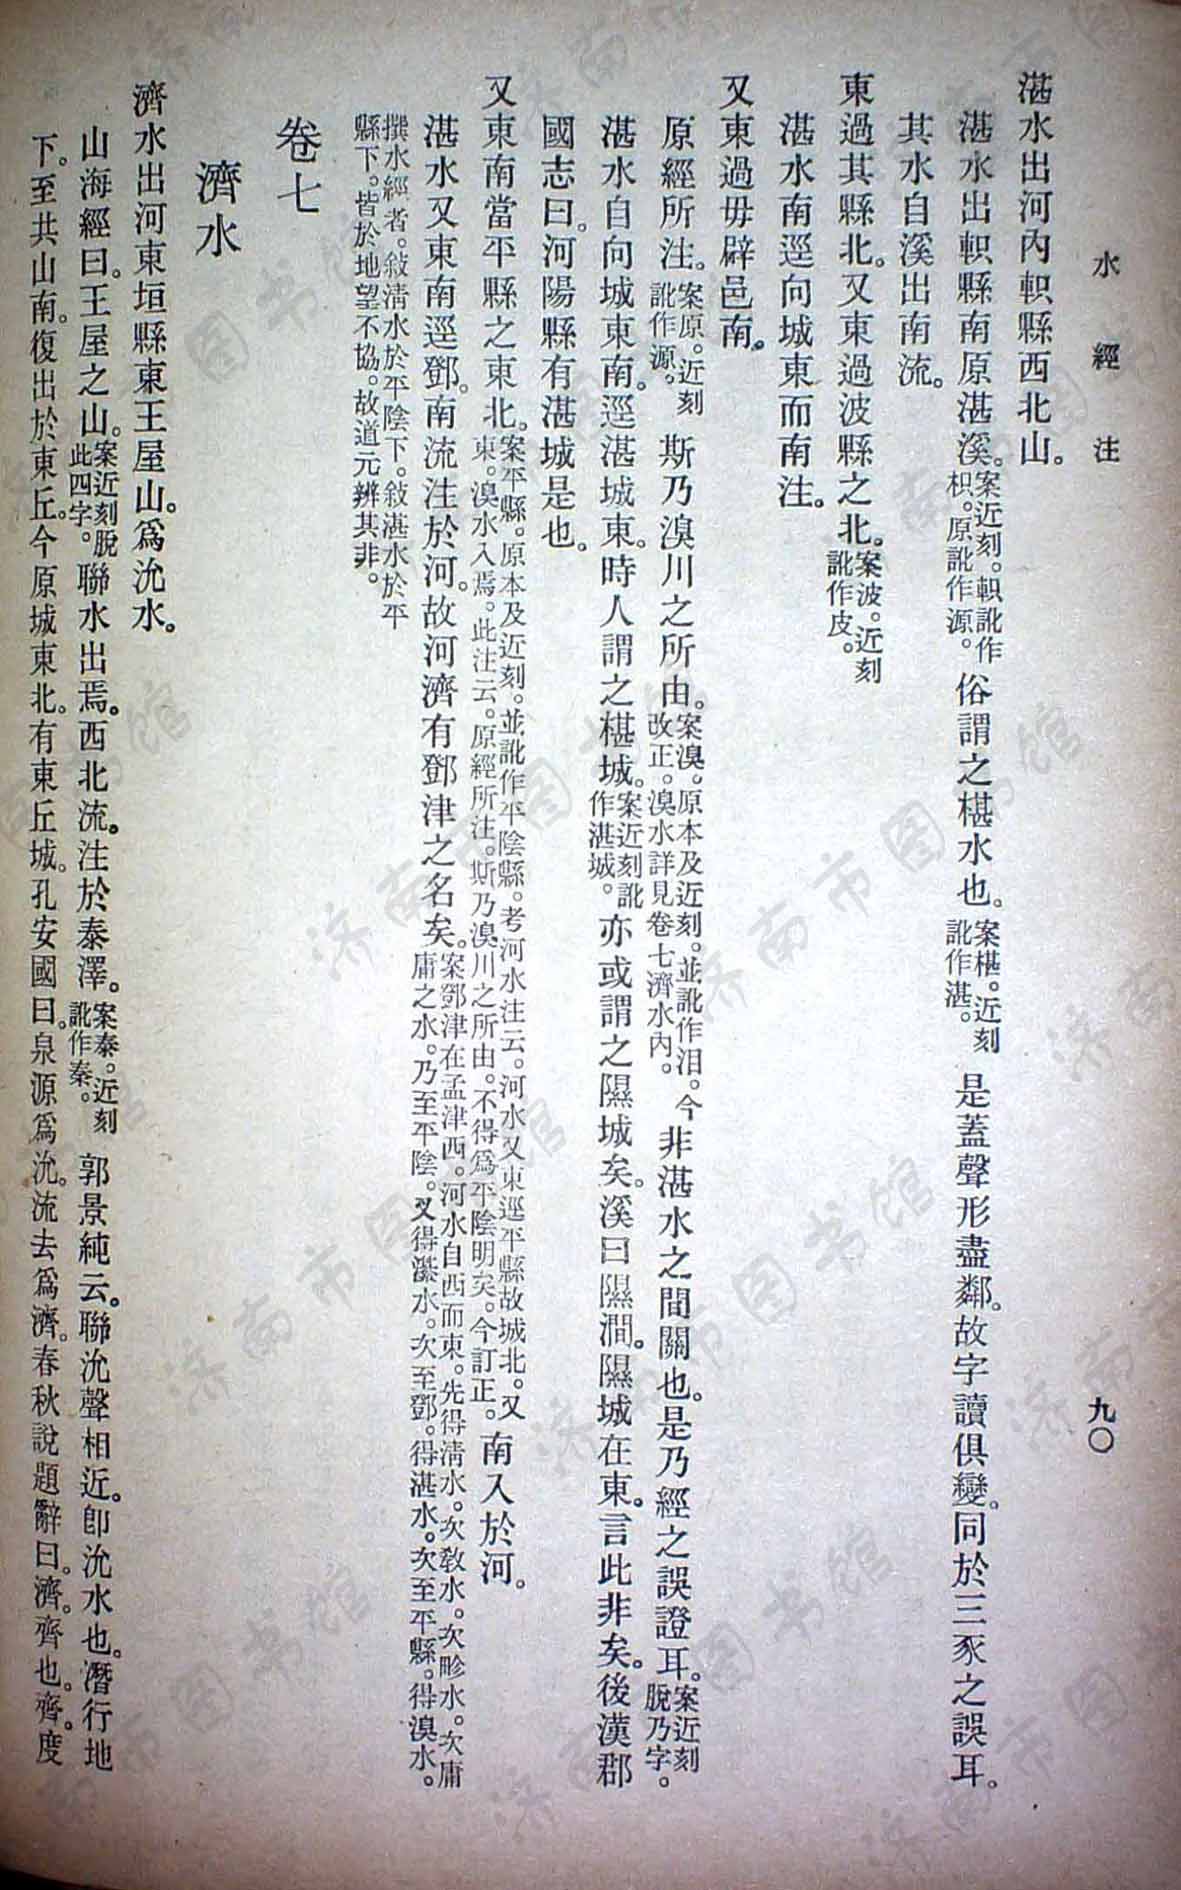 水經注
九〇
湛水出河內軹縣西北山。
湛水出軹縣南原湛溪。案近刻。軹訛作枳。原訛作源。俗謂之椹水也。案椹。近刻訛作湛。是蓋聲形盡鄰。故字讀俱變。同於三豕之誤耳。
其水自溪出南流。
東過其縣北。又東過波縣之北。案波。近刻訛作皮。
湛水南逕向城東而南注。
又東過毋辟邑南。
原經所注。案原。近刻訛作源。斯乃溴川之所由。案溴。原本及近刻。並訛作洎。今改正。溴水詳見卷七濟水內。非湛水之間關也。是乃經之誤證耳。案近刻脫乃字。
湛水自向城東南。逕湛城東。時人謂之椹城。案近刻訛作湛城。亦或謂之隰城矣。溪曰隰澗。隰城在東。言此非矣。後漢郡
國志曰。河陽縣有湛城是也。
又東南當平縣之東北。案平縣。原本及近刻。並訛作平陰縣。考河水注云。河水又東逕平縣故城北。又東。溴水入焉。此注云。原經所注。斯乃溴川之所由。不得爲平陰明矣。今訂正。南入於河。
湛水又東南逕鄧。南流注於河。故河濟有鄧津之名矣。案鄧津在孟津西。河水自西而東。先得清水。次教水。次畛水。次庸庸之水。乃至平陰。又得漾水。次至鄧。得湛水。次至平縣。得溴水。
撰水經者。敍清水於平陰下。敍湛水於平縣下。皆於地望不協。故道元辨其非。
卷七
濟水
濟水出河東垣縣東王屋山。爲沇水。
山海經曰。王屋之山。案近刻脫此四字。聯水出焉。西北流。注於泰澤。案泰。近刻訛作秦。郭景純云。聯沇聲相近。卽沇水也。潛行地
下。至共山南。復出於東丘。今原城東北。有東丘城。孔安國曰。泉源爲沇。流去爲濟。春秋說題辭曰。濟。齊也。齊。度
济南市图书馆